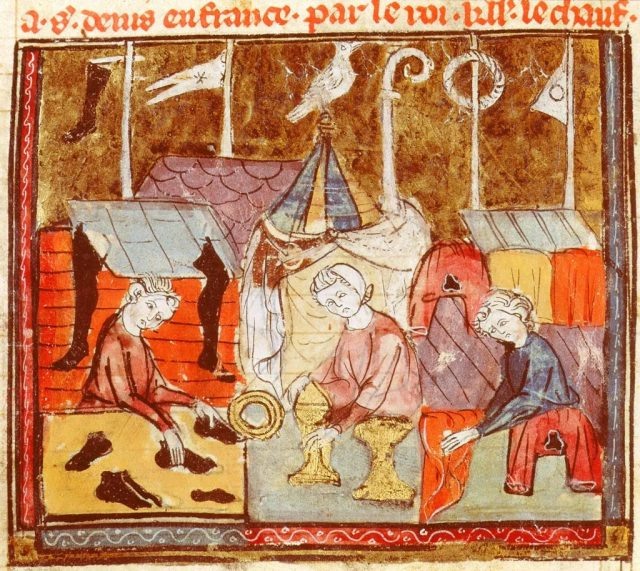 a. st. denis en france. par le roi. kll. le chauf.